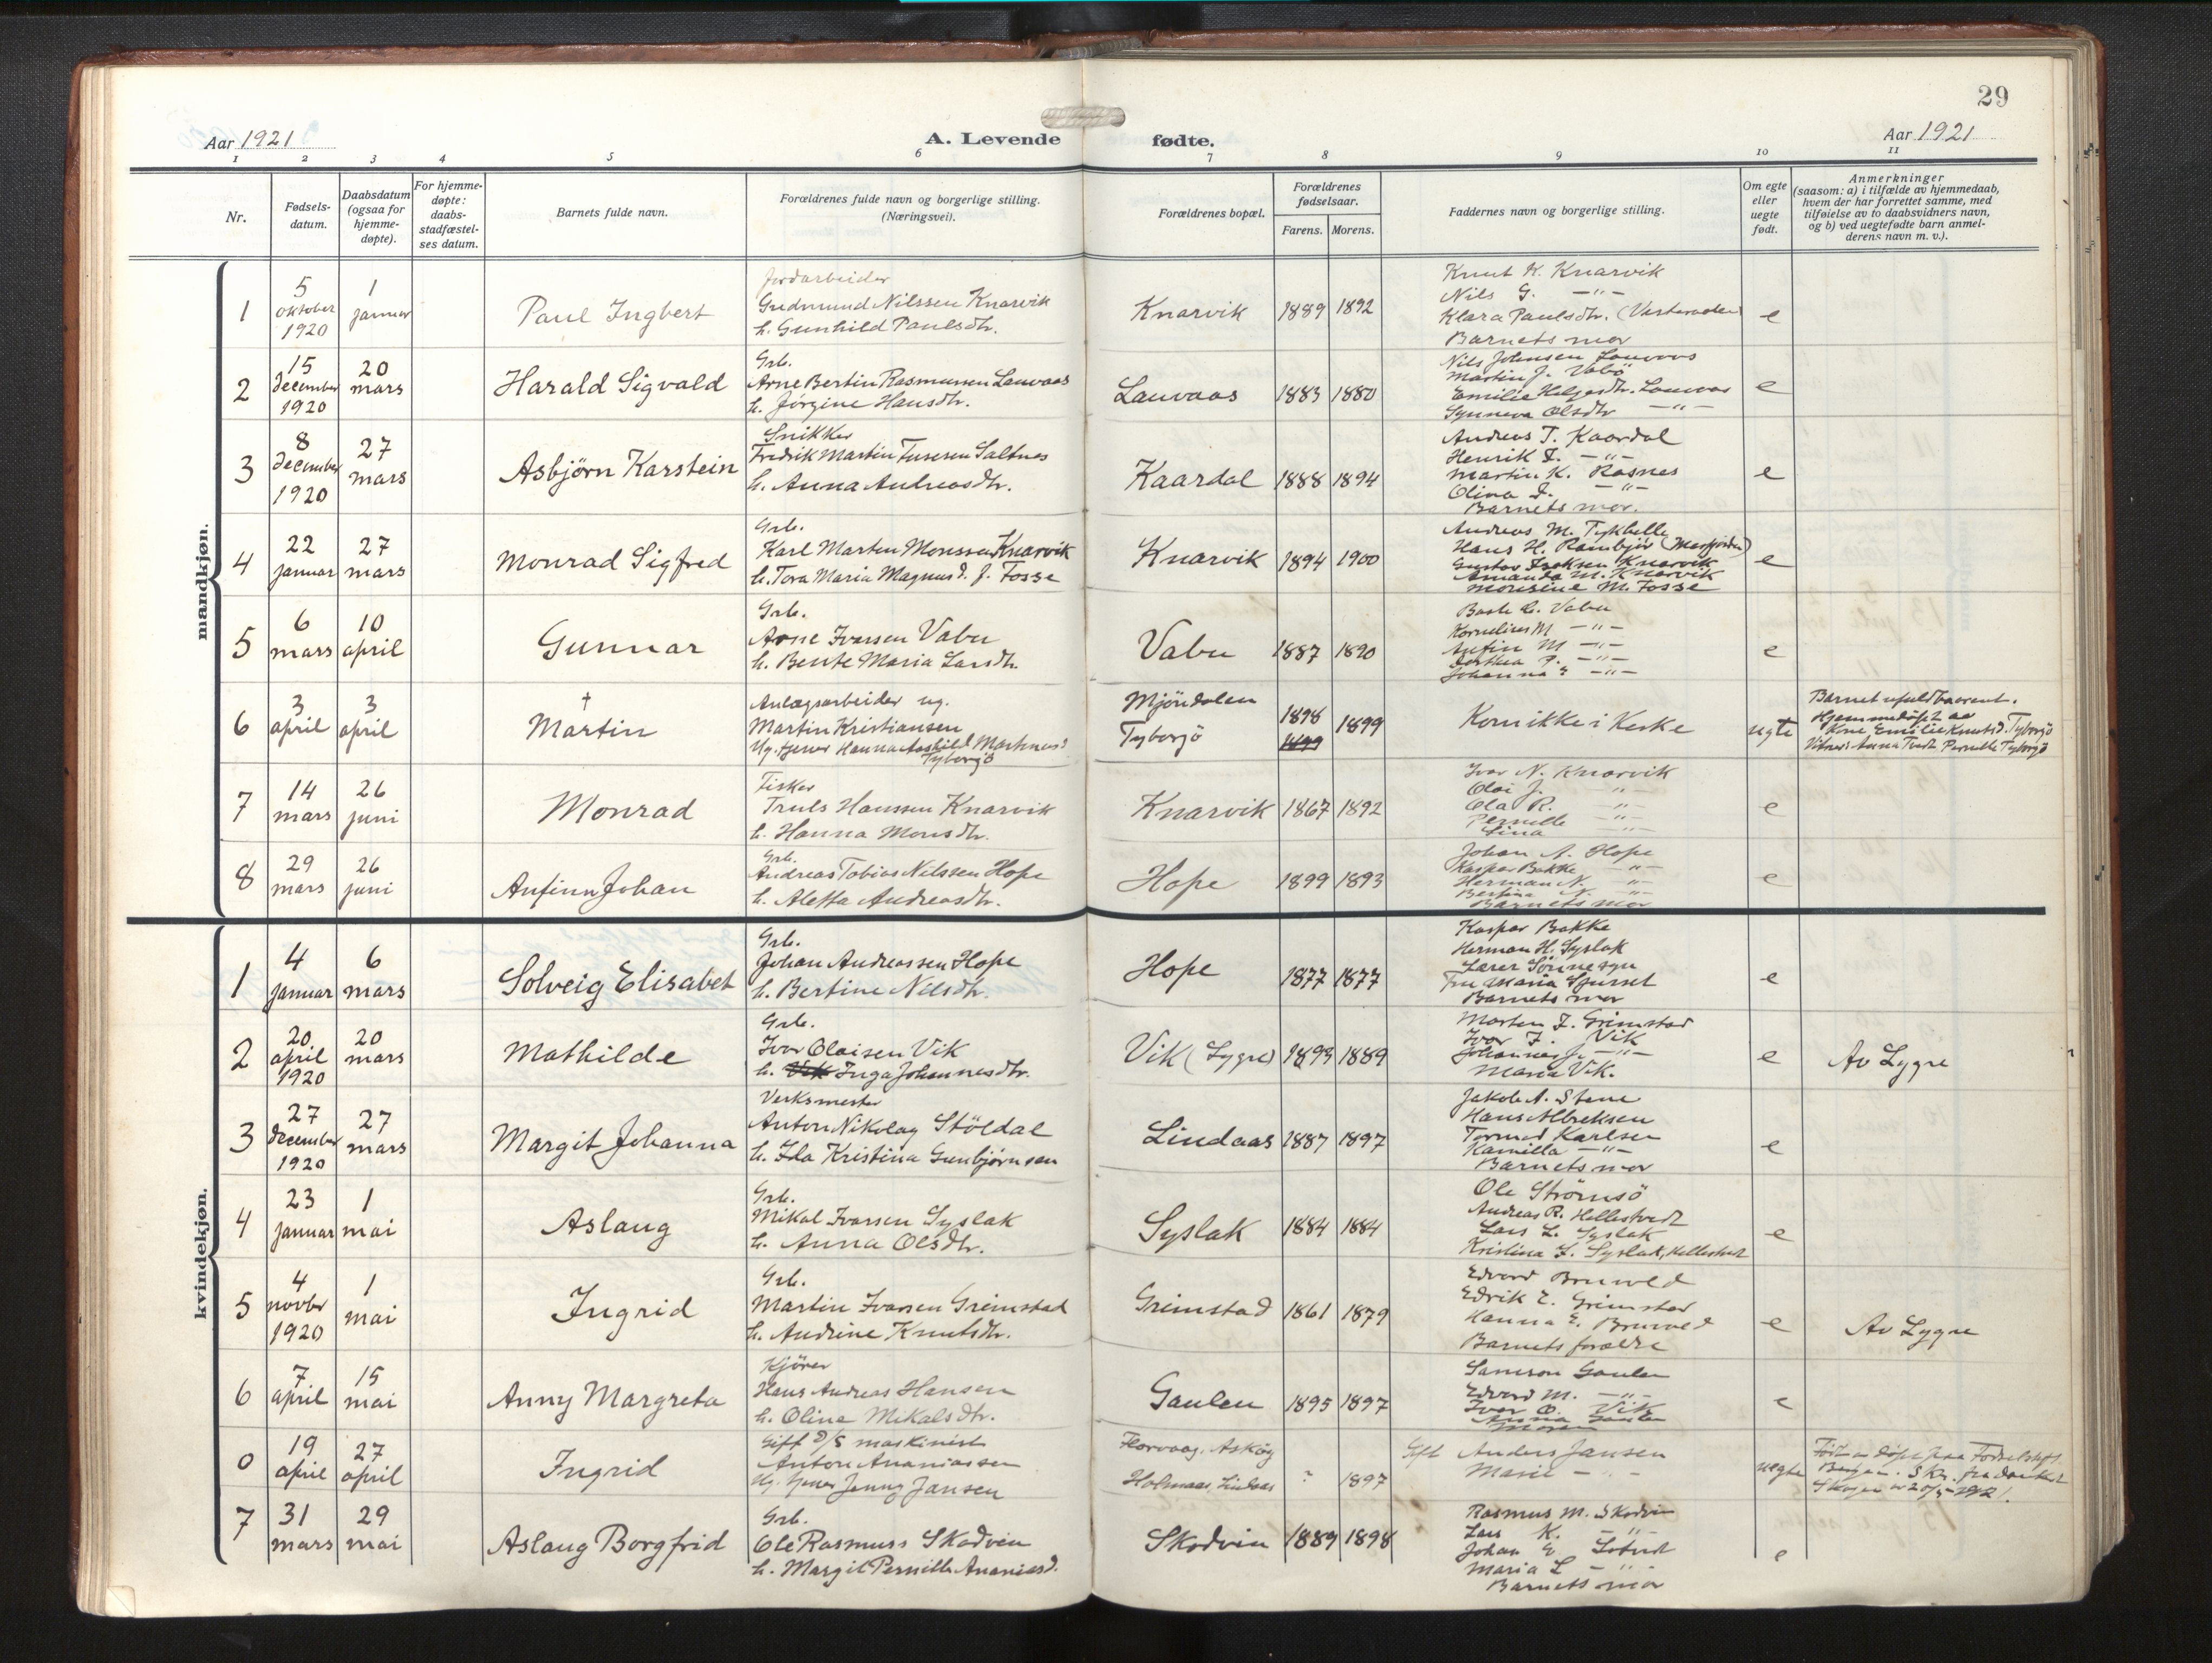 29
Aar 1921
A. Levende fødte.
Aar 1921
1 2 3 4 5 6 7 8 9 10 11
Nr.
Fødsels-
datum.
Daabsdatum
(ogsaa for
hjemme-
døpte).
For hjemme-
døpte:
daabs-
stadfæstel-
ses datum.
Barnets fulde navn.
Forældrenes fulde navn og borgerlige stilling.
(Næringsvei).
Forældrenes bopæl.
Forældrenes
fødselsaar.
Farens. Morens.
Faddernes navn og borgerlige stilling.
Om egte
eller
uegte
født.
Anmerkninger
(saasom: a) i tilfælde av hjemmedaab,
hvem der har forrettet samme, med
tilføielse av to daabsvidners navn,
og b) ved uegtefødte barn anmel-
derens navn m. v.).
mandkjøn.
1
5
oktober
1920
1
januar
Paul Ingbert
Jordarbeider
Gudmund Nilssen Knarvik
h. Gunhild Paulsdtr.
Knarvik
1889 1892
Knut K. Knarvik
Nils G. -"-
Klara Paulsdtr.
Barnets mor
e
2
15
december
1920
20
mars
Harald Sigvald
Grb.
Arne Bertin Rasmussen Lauvaas
h. Jörgine Hansdtr.
Lauvaas
1883 1880
Nils Johnsen Lauvaas
Martin J. Vabö
Emilie Helgesdtr. Lauvaas
Synneva Olsdtr -"-
e
3
8
december
1920
27
mars
Asbjörn Karstein
Snikker
Fredrik Martin Saltnes
h. Anna Andreasdtr.
Kaardal
1888 1894
Andreas T. Kaardal
Henrik T. -"-
Martin K. Rasnes
Olina -"-
Barnets mor.
e
4
22
januar
27
mars
Monrad Sigfred
Grb.
Karl Marten Monssen Knarvik
h. Tora Maria Magnusd. f. Fosse
Knarvik
1894 1900
Andreas M. Tykhelle
Hans H.
Gustav Knarvik
Amanda M. Knarvik
Monsine M. Fosse
e
5
6
mars
10
april
Gunnar
Grb.
Arne Ivarsen Vabu
h. Bente Maria Larsdtr.
Vabu
1887 1890
Vabu
Kornelius M -"-
Anfin M -"-
-"-
Johanna -"-
e
6
3
april
3
april
†
Martin
Anlægsarbeider ug.
Martin Kristiansen
Ug. tjener Hanna Aashild Martinusd.
Tyborgö
Mjöndalen
Tyborgö
1898
1899 1899
Kom ikke i Kirke
uegte
Barnet ufuldbaarent.
Hjemmedöpt av
Kone Emilie Knutsd. Tyborgö
Vitner: Anna Pernille Tyborgö
7
14
mars
26
juni
Monrad
Fisker
Truls Hanssen Knarvik
h. Hanna Monsdtr.
Knarvik
1867 1892
Ivar N. Knarvik
Olai J. -"-
Ola R. -"-
Pernille -"-
Lina -"-
e
8
29
mars
26
juni
Anfinn Johan
Grb.
Andreas Tobias Nilssen Hope
h. Aletta Andreasdtr.
Hope
1899 1893
Johan A. Hope
Kaspar Bakke -"-
Herman N. -"-
Bertina N. -"-
Barnets mor
e
kvindekjøn.
1
4
januar
6
mars
Solveig Elisabet
Grb.
Johan Andreassen Hope
h. Bertine Nilsdtr.
Hope
1877 1877
Kaspar Bakke
Herman H. Syslak
Lærer Sönnesyn
Fru Maria
Barnets mor
e
2
20
april
1920
20
mars
Mathilde
Grb.
Ivar Olaisen Vik
h. Vik Inga Johannesdtr.
Vik (Lygre)
1893 1889
Morten J. Grimstad
Ivar J. Vik
Johannes J. -"-
Maria Vik.
e
Av Lygre
3
27
december
1920
27
mars
Margit Johanna
Verksmester
Anton Nikolay Stöldal
h. Ida Kristina Gunbjörnsen
Lindaas
1887 1897
Jakob A. Stene
Hans Albreksen
Tormod Karlsen
Kamilla -"-
Barnets mor
e
4
23
januar
1
mai
Aslaug
Grb.
Mikal Ivarsen Syslak
h. Anna Olsdtr.
Syslak
1884 1884
Ole Strömsö
Andreas R. Hellestvedt
Lars L. Syslak
Kristina L. Syslak, Hellestvet
e
5
4
novbr
1920
1
mai
Ingrid
Grb.
Martin Ivarsen Grimstad
h. Andrine Knutsdtr.
Grimstad
1861 1879
Edvard Bruvold
Edrik E. Grimstad
Hanna E. Bruvold
Barnets forældre
e
Av Lygre
6
7
april
15
mai
Anny Margreta
Kjörer
Hans Andreas Hansen
h. Oline Mikalsdtr.
Gaulen
1895 1897
Samson Gaulen
Edvard M. -"-
Ivar O. Vik
Anna Gaulen
Moren
e
0
19
april
27
april
Ingrid
Gift D/S maskinist
Anton Ananiassen
Ug. tjener Jenny Jansen
Florvaag, Asköy
Holmaas, Lindaas
? 1897
Gift Anders Jansen
Marie -"-
uegte
Född og döpt paa Fødselsstift.
Bergen.
7
31
mars
29
mai
Aslaug Borgfrid
Grb.
Ole Rasmuss Skodvin
h. Margit Pernille Ananiasd.
Skodvin
1889 1898
Rasmus M. Skodvin
Lars K. -"-
Johan E.
Maria L -"-
Barnets mor
e